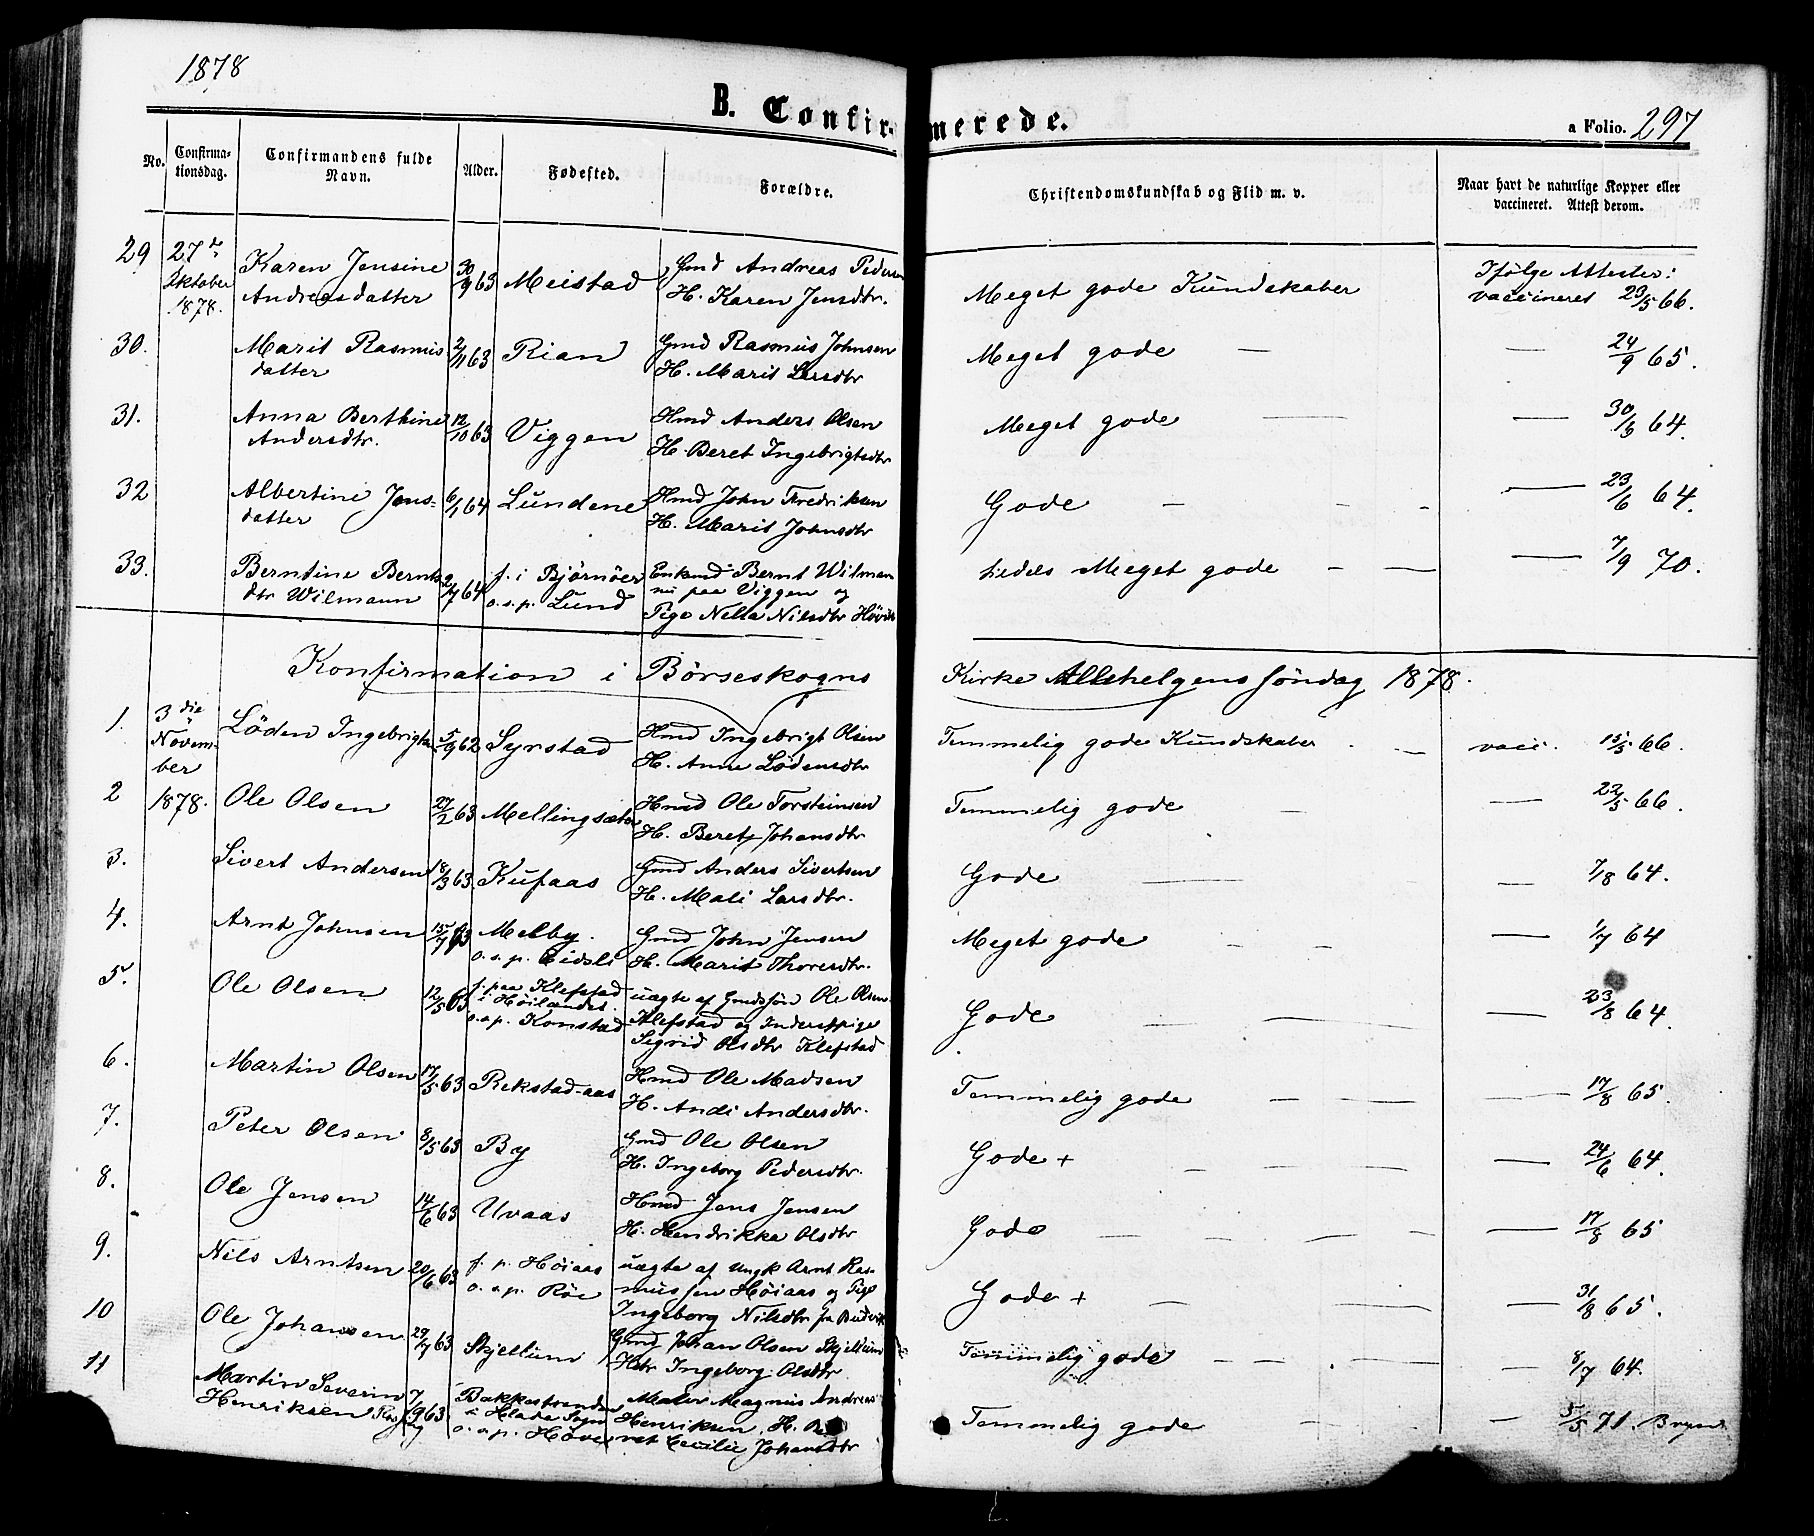 1878
B. Confirmerede.
a Folio. 297
No. Confirmationsdag. Confirmandens fulde Navn. Alder. Fødested. Forældre. Christendomskundskab og Flid m. v. Naar havt de naturlige Kopper eller vaccineret. Attest derom.
29 27de Oktober 1878. Karen Jensine Andreasdatter 30/9 63 Meistad Gmd Andreas Pedersen H. Karen Jensdtr. Meget gode Kundskaber Ifølge Attester: vaccineret 23/5 66.
30. Marit Rasmusdatter 2/11 63 Rian Gmd Rasmus Johnsen H. Marit Larsdtr Meget gode — — 24/9 65.
31. Anna Berthine Andersdtr. 12/10 63 Viggen Hmd Anders Olsen H. Beret Ingebrigtsdtr Meget gode — — 30/9 64.
32 Albertine Jonsdatter 6/1 64 Lundene Hmd John Fredriksen H. Marit Johnsdtr Gode — — — 23/6 64.
33. Berntine Berntsdtr Wilmann 2/7 64 f. i Bjørnöer o. s. p. Lund Enkmd Bernt Wilmann nu paa Viggen og Pige Nella Nilsdtr Meget gode — — — 7/9 70.
Konfirmation i Börseskogns Kirke Allehelgens söndag 1878.
1. 3die November 1878. Löden Ingebrigts. 5/9 62 Syrstad Hmd Ingebrigt Olsen H. Anne Lödensdtr Temmelig gode Kundskaber — vacc. 15/5 66.
2 Ole Olsen 27/2 63 Mellingsæter Hmd Ole Torsteinsen H. Beret Johansdtr Temmelig gode — — 22/5 66.
3. Sivert Andersen 18/3 63 Kufaas Gmd Anders Sivertsen H. Mali Larsdtr. Gode — — 7/8 64.
4. Arnt Johnsen 15/4 63 Melby. o. s. p. Eidsli Gmd John Jensen H. Marit Thoresdtr. Meget gode — — — 1/7 64
5. Ole Olsen 12/5 63 f. paa Klefstad i Höilandet. o. s. p. Konstad uægte af Gmdssön Ole Olsen Klefstad og Inderstpige Sigrid Olsdtr Klefstad Gode — — — 23/8 64.
6. Martin Olsen 17/5 63 Rekstad-aas Hmd Ole Madsen H. Andi Andersdtr. Temmelig gode — — — 17/8 65.
7. Peter Olsen 8/5 63 By Gmd Ole Olsen H. Ingeborg Pedersdtr. Gode + — — — 24/6 64.
8. Ole Jensen 14/6 63 Uvaas Hmd Jens Jensen H. Hendrikke Olsdtr Gode — — — — 17/8 65
9. Nils Arntsen 20/6 63 f. p. Höiaas o. s. p. Röe uægte af Ungk Arnt Rasmussen Höiaas og Pige Ingeborg Nilsdtr fra Gode + — — — 31/8 65.
10 Ole Johansen 29/7 63 Skjellum Gmd Johan Olsen Skjellum Hstr Ingeborg Olsdtr Temmelig gode — — — 8/7 64.
11 Martin Severin Henriksen 7/9 63 Bakkestranden i Hlade Sogn o. s. p. Höve Maler Magnus Andreas Henriksen, H. Beret Cecilie Johansdtr Temmelig gode — — — 5/5 71.